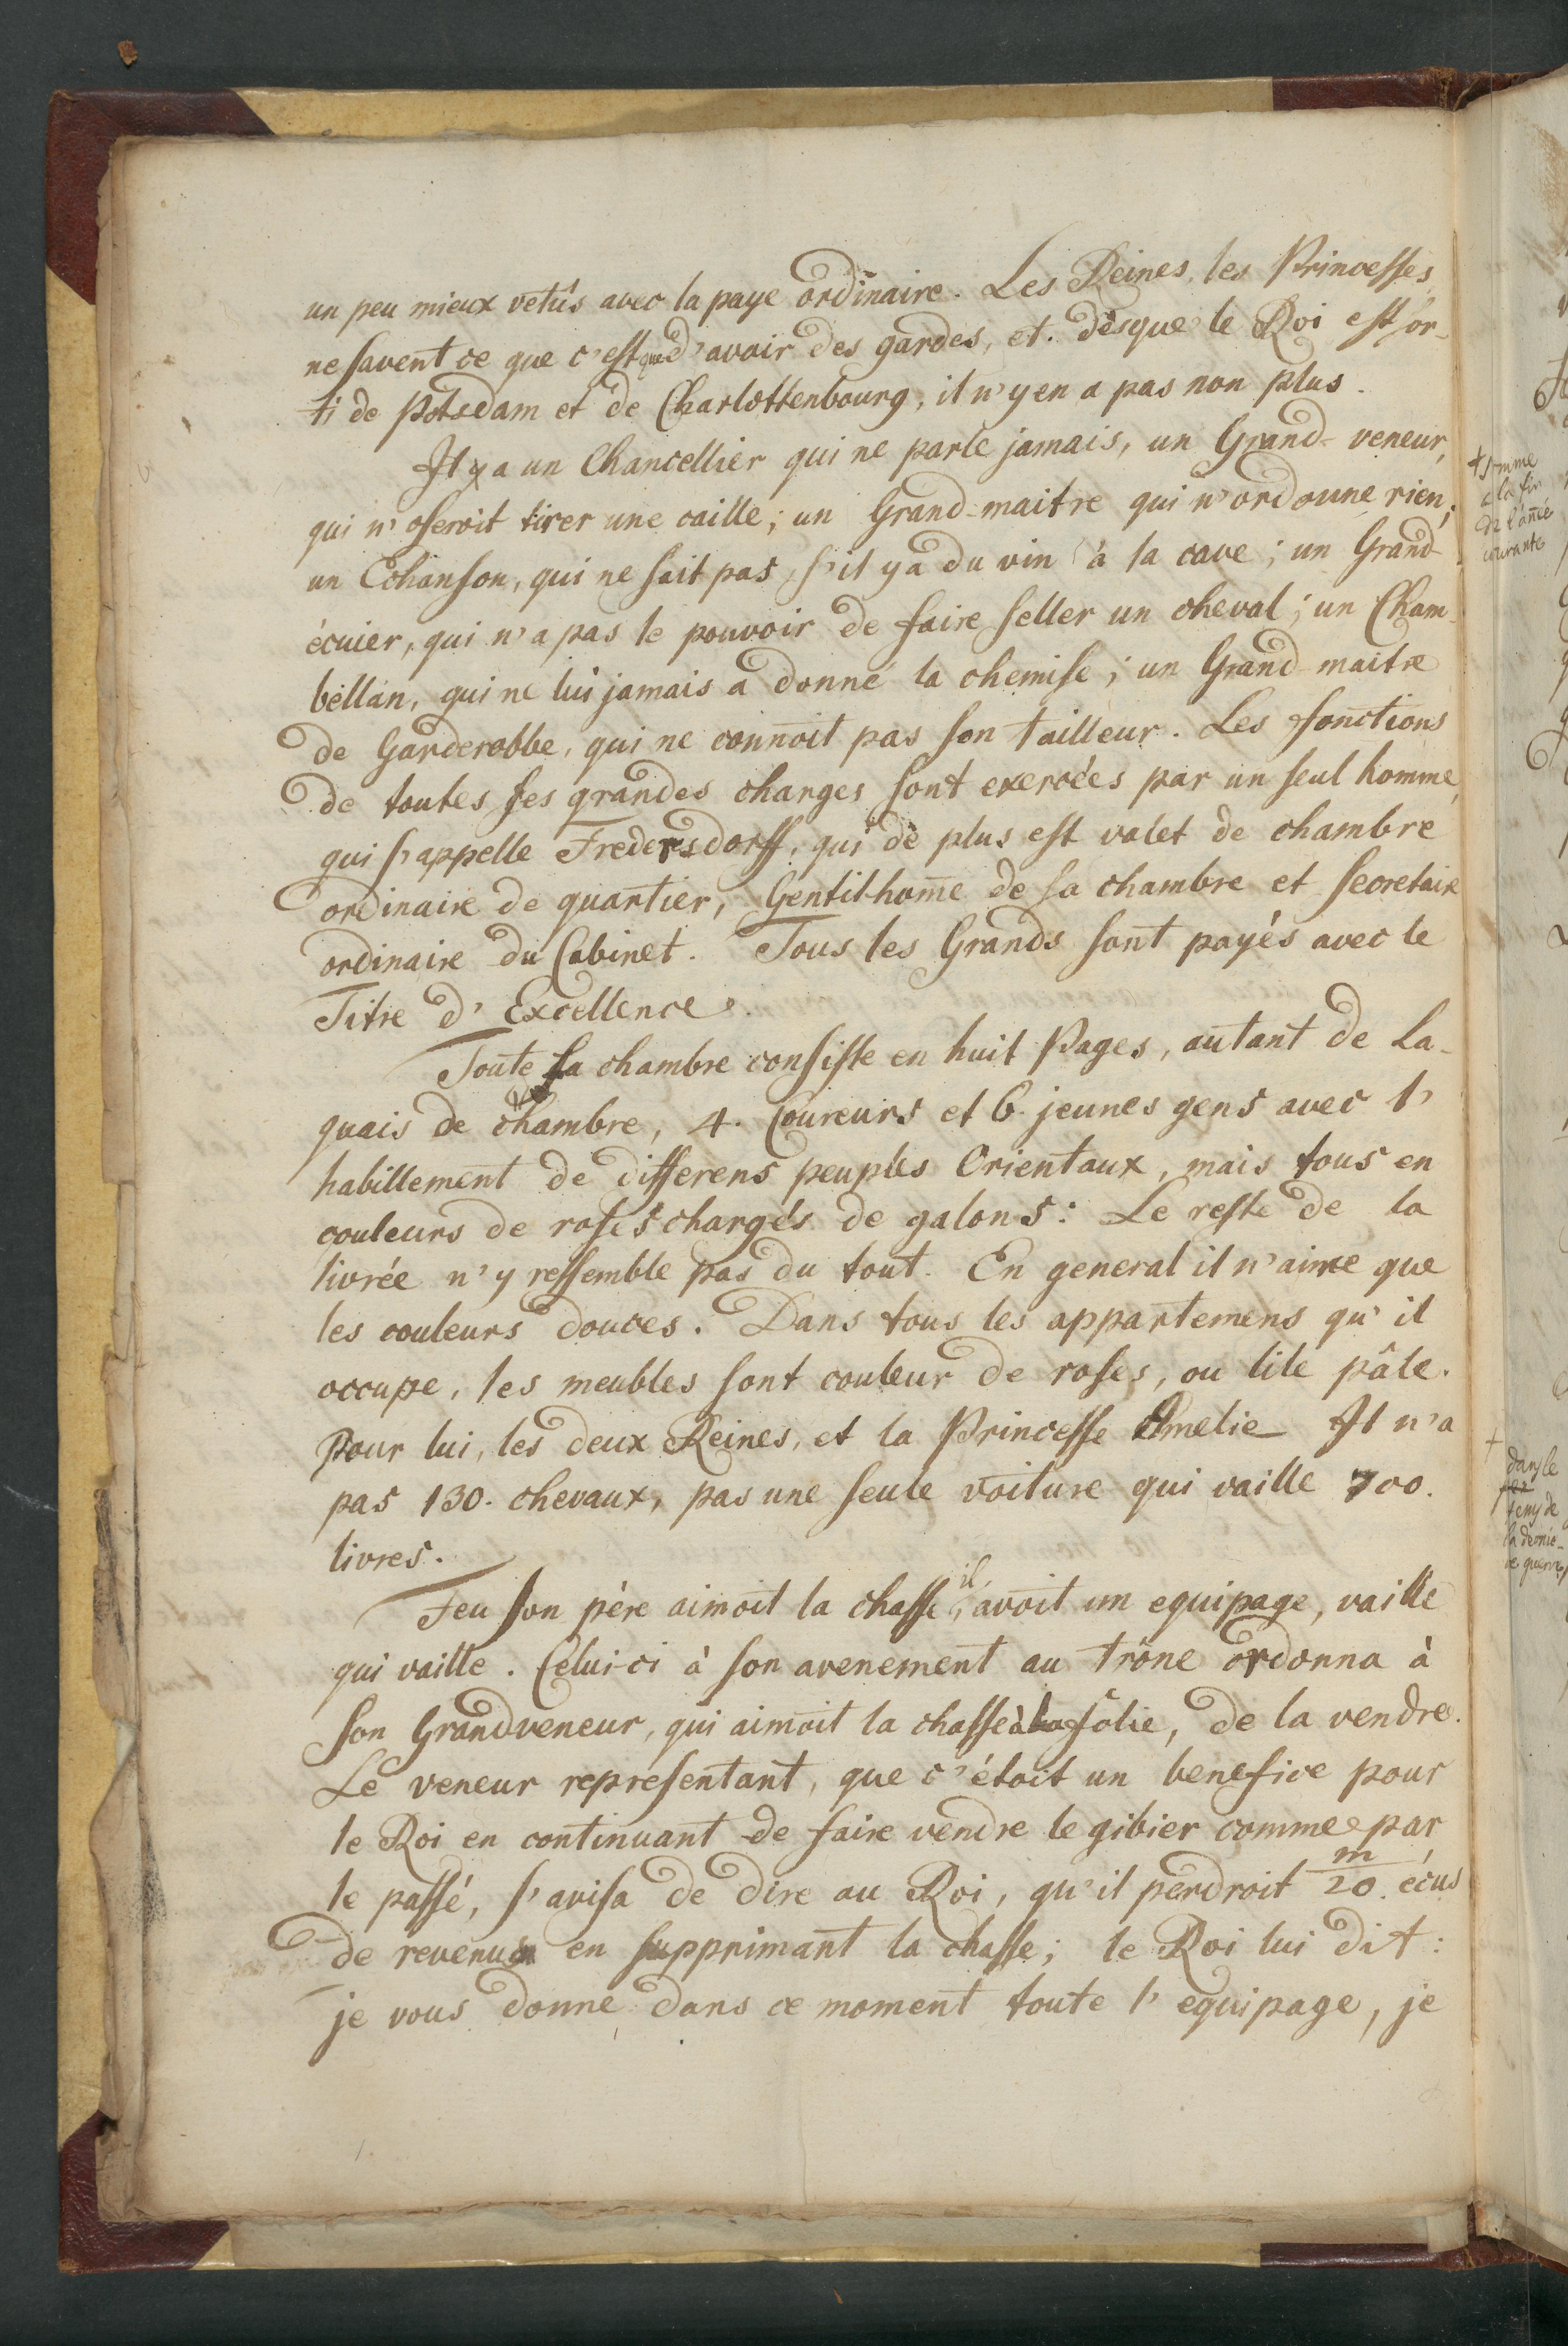 un peu mieux vetûs avec la paye ordinaire. Les Reines, les Princesses,
ne savent ce que c'est que d'avoir des gardes, et. dèsque le Roi est sor-
ti de Potsdam et de Charlottenbourg, il n'y en a pas non plus.
Il y a un Chancellier qui ne parle jamais, un Grand-veneur,
qui n'oseroit tirer une caille; un Grand-maitre qui n'ordonne rien;
un Echanson, qui ne sait pas, s'il y a du vin à la cave; un Grand-
écuier, qui n'a pas le pouvoir de faire seller un cheval; un Cham-
bellan, qui ne lui jamais a donné la chemise; un Grand-maitre
de Garderobbe, qui ne connoit pas son tailleur. Les fonctions
de toutes ses grandes charges sont exercées par un seul homme,
qui s'appelle Fredersdorff, qui de plus est valet de chambre
ordinaire de quartier, Gentil-hom̄e de sa chambre et secretaire
ordinaire du Cabinet. Tous les Grands sont payés avec le
Titre d'Excellence.
Toute sa chambre consiste en huit Pages, autant de La-
quais de chambre, 4. Coureurs et 6 jeunes gens avec l'
habillement de differens peuples Orientaux, mais tous en
couleurs de roses chargés de galons: Le reste de la
livrée n'y ressemble pas du tout. En general il n'aime que
les couleurs douces. Dans tous les appartemens qu'il
occupe, les meubles sont couleur de roses, ou lile pâle.
Pour lui, les deux Reines, et la Princesse Amelie Il n'a
pas 130. chevaux, pas une seule voiture qui vaille 700.
livres.
Feu son père aimoit la chasse, il avoit un equipage, vaille
qui vaille. Celui-ci à son avenement au trône ordonna à
son Grandveneur, qui aimoit la chasse à la folie, de la vendre.
Le veneur representant, que c'étoit un benefice pour
le Roi en continuant de faire vendre le gibier comme par
le passé, s'avisa de dire au Roi, qu'il perdroit m/20. écus
de revenus en supprimant la chasse; le Roi lui dit:
je vous donne dans ce moment toute l'equipage, je
à la fin
de l'añée
courante
+
dans le
tems de
la dernie-
re guerre